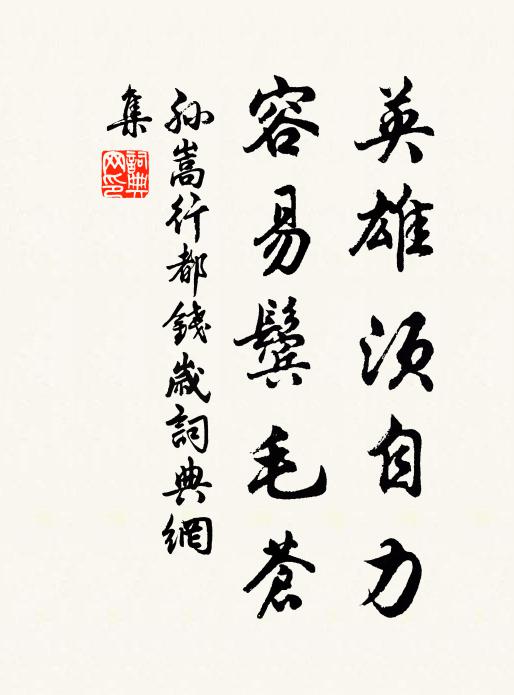 英雄須自力
容易鬢毛蒼
孙嵩行都錢歲詞典網
集
詞典
网印